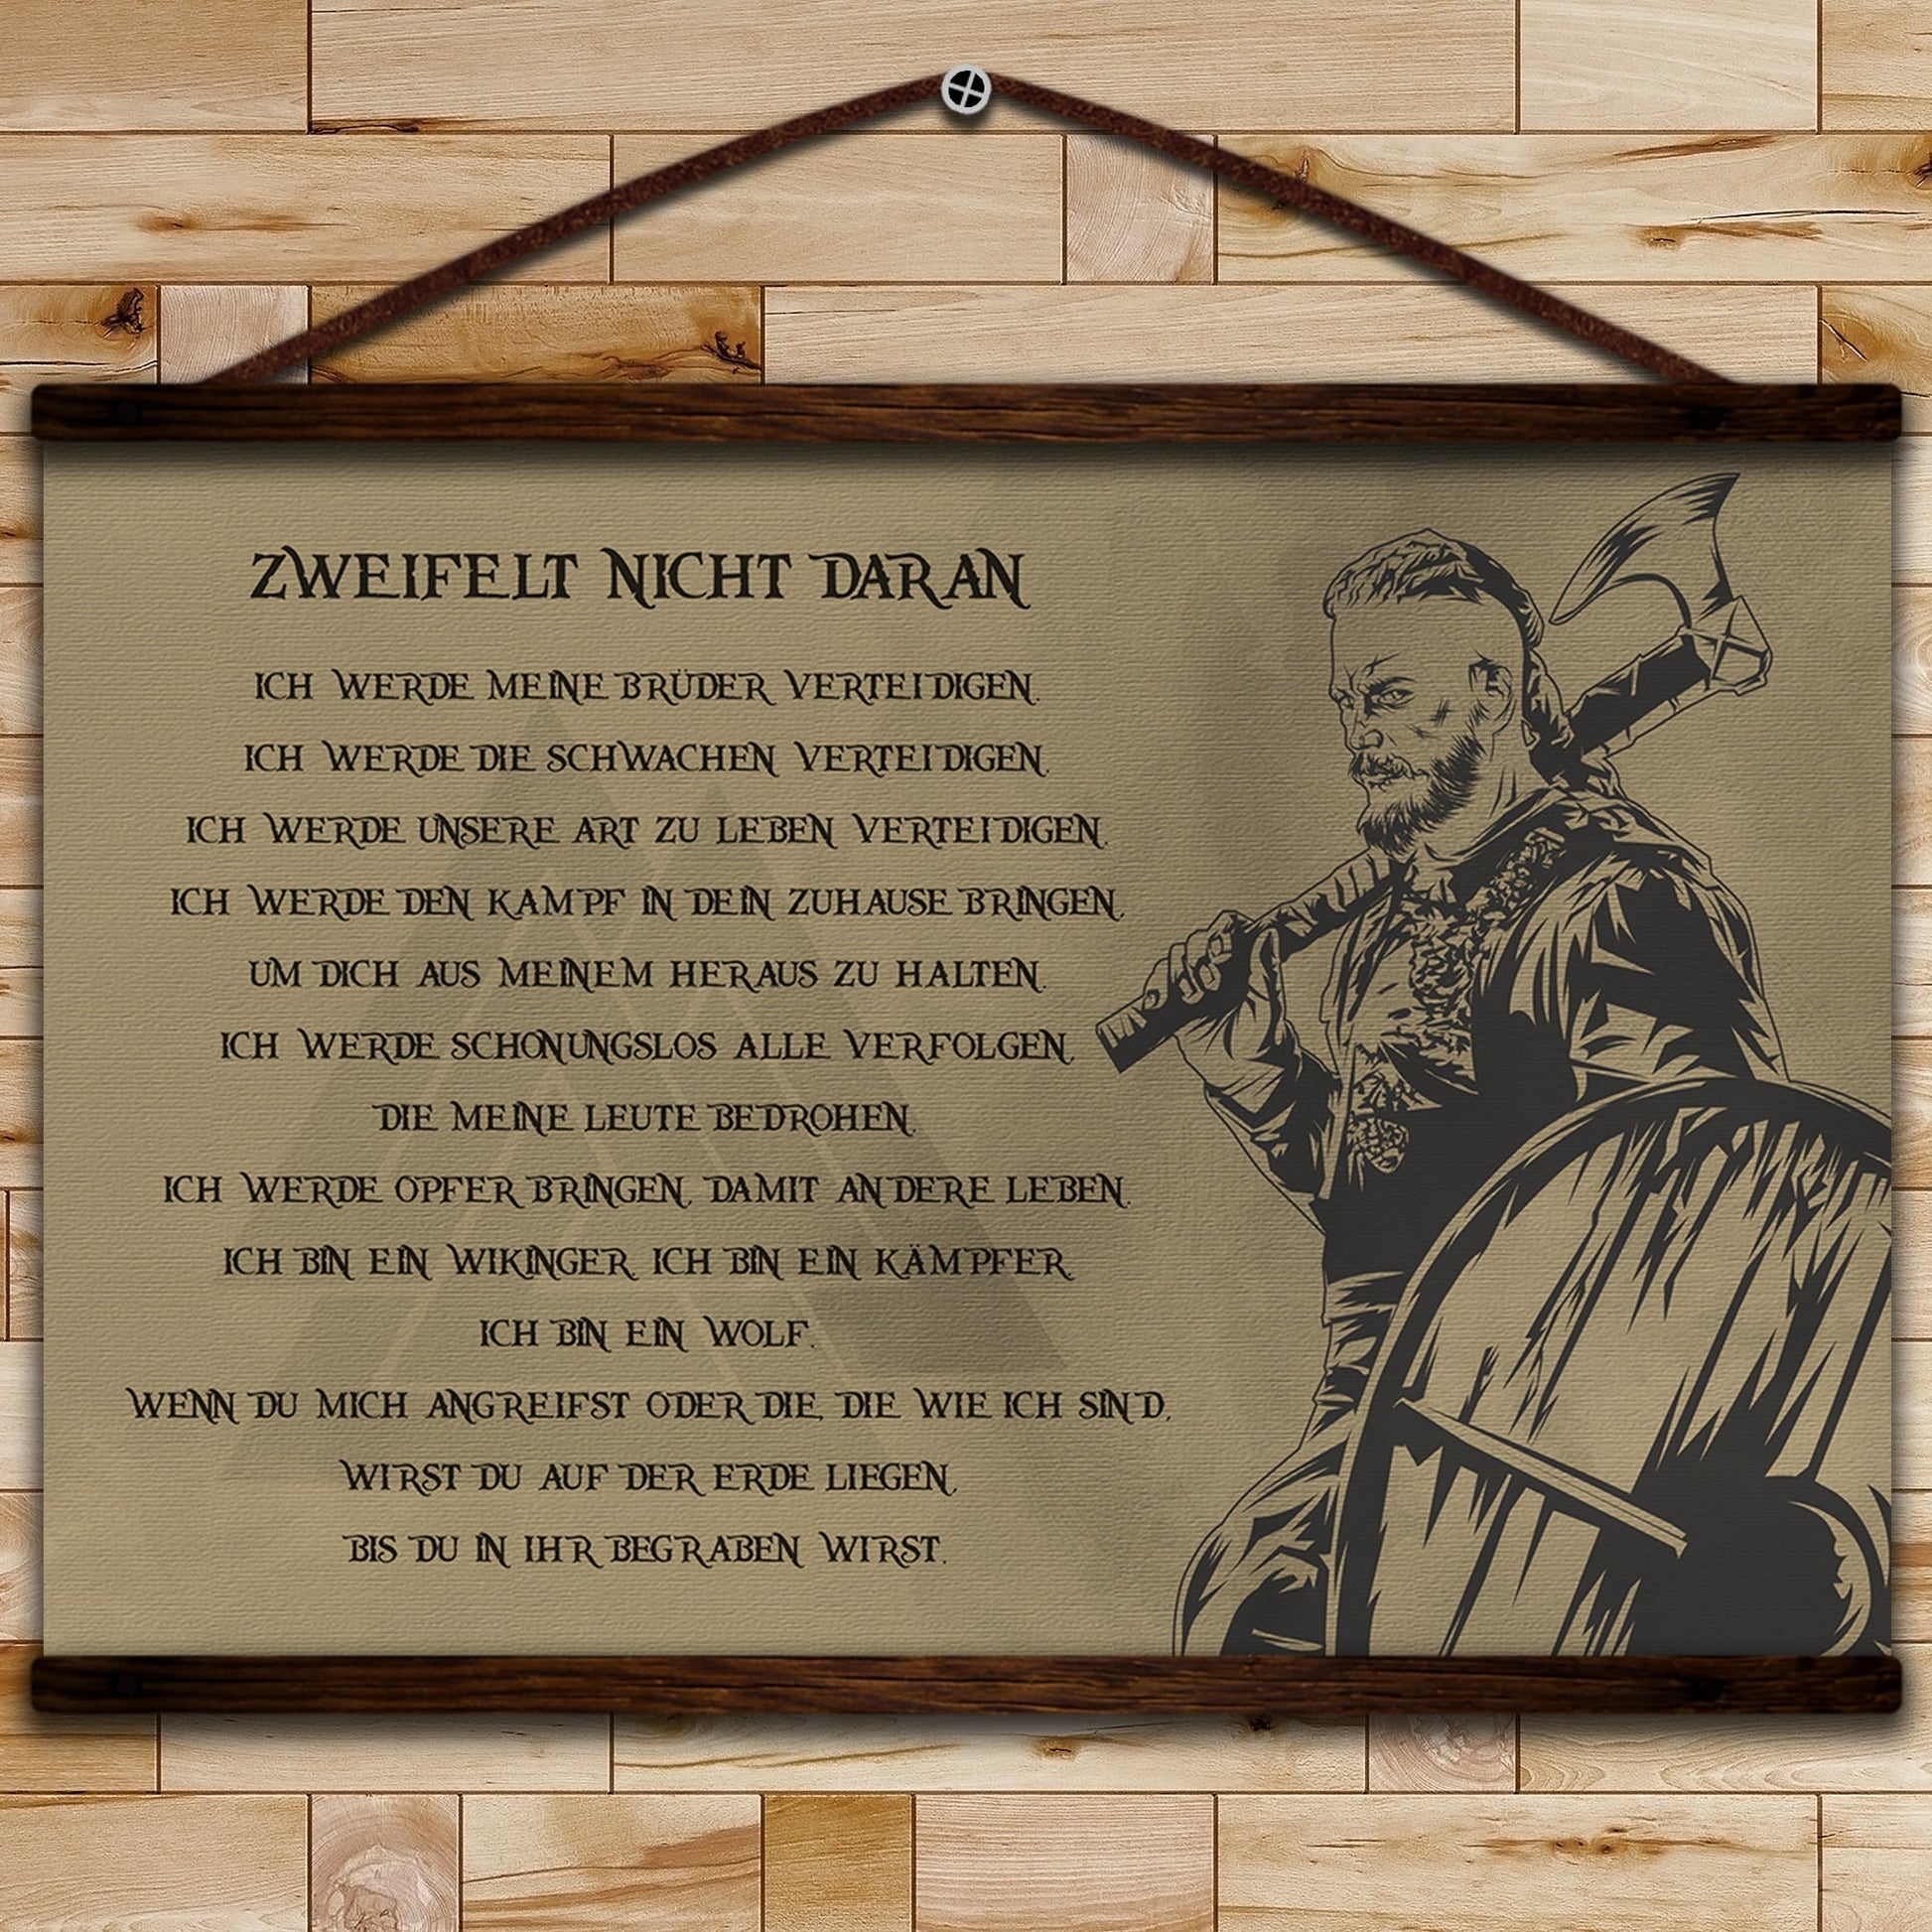 ZWEIFELT NICHT DARAN
ICH WERDE MEINE BRÜDER VERTEIDIGEN.
ICH WERDE DIE SCHWACHEN VERTEIDIGEN.
ICH WERDE UNSERE ART ZU LEBEN VERTEIDIGEN.
ICH WERDE DEN KAMPF IN DEIN ZUHAUSE BRINGEN,
UM DICH AUS MEINEM HERAUS ZU HALTEN.
ICH WERDE SCHONUNGSLOS ALLE VERFOLGEN,
DIE MEINE LEUTE BEDROHEN.
ICH WERDE OPFER BRINGEN, DAMIT ANDERE LEBEN.
ICH BIN EIN WIKINGER, ICH BIN EIN KÄMPFER,
ICH BIN EIN WOLF.
WENN DU MICH ANGREIFST ODER DIE, DIE WIE ICH SIND,
WIRST DU AUF DER ERDE LIEGEN,
BIS DU IN IHR BEGRABEN WIRST.